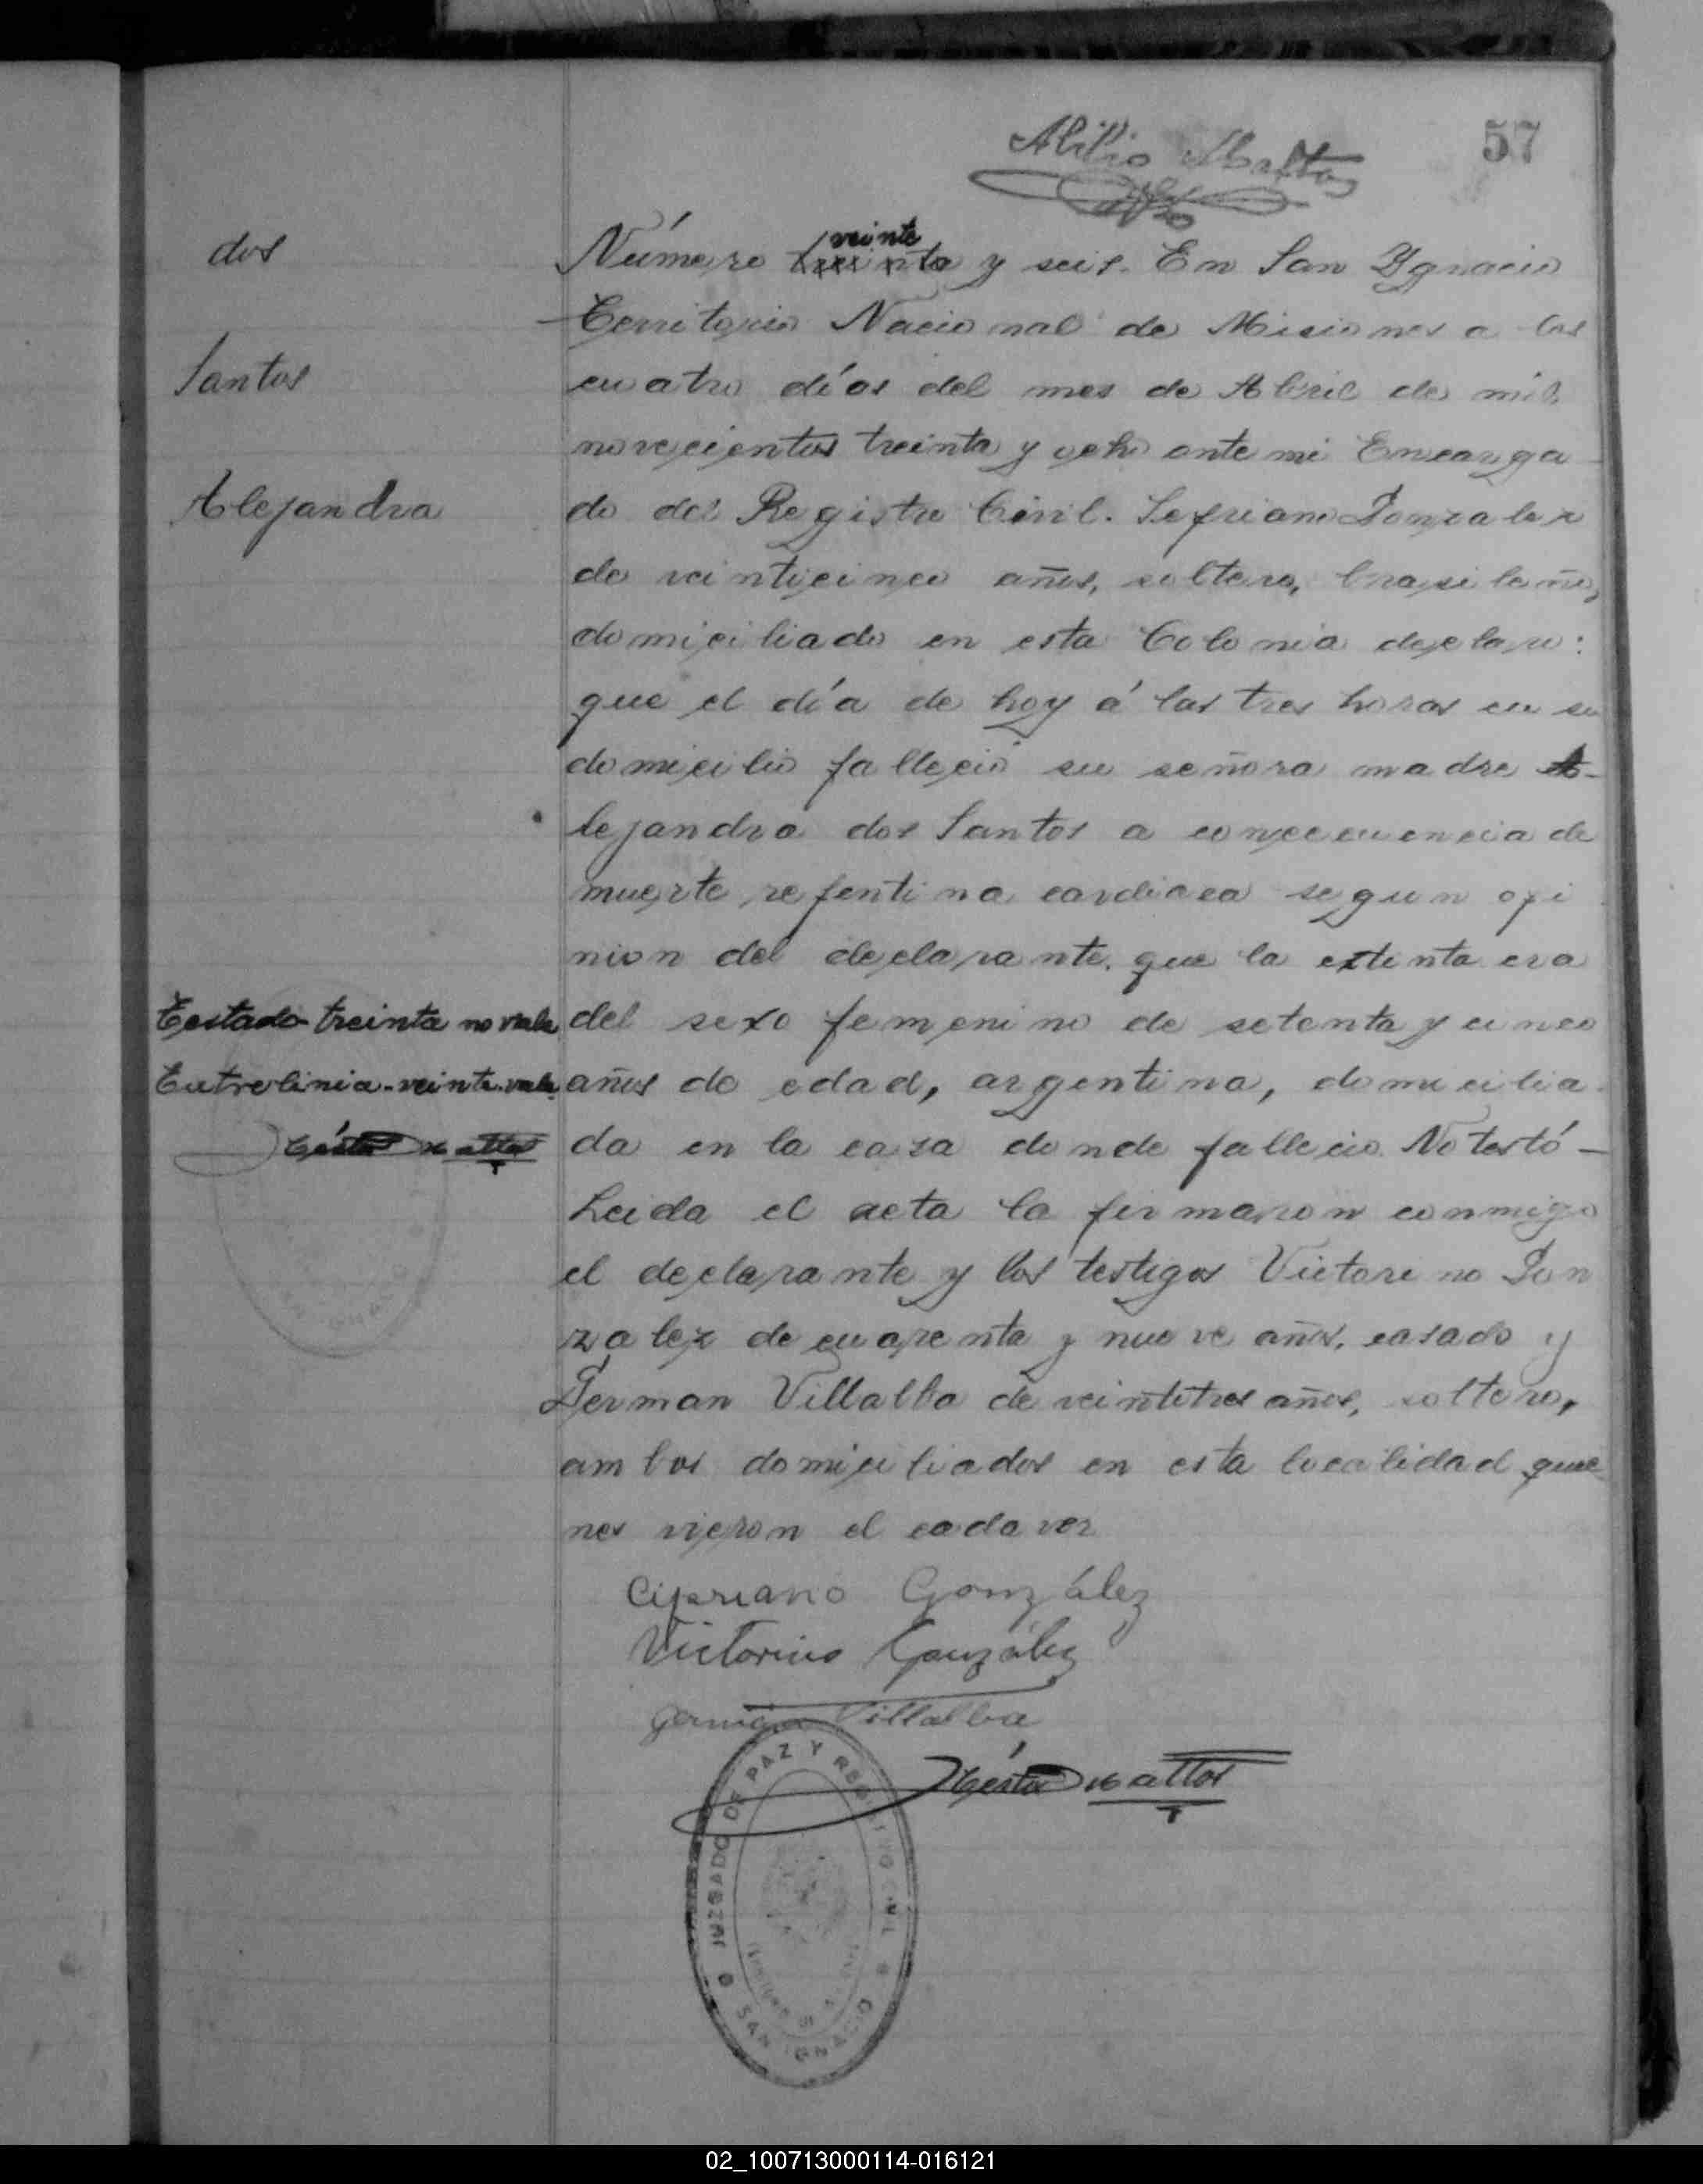 57
dos
Santos
Alejandra
Número treinta veinte y seis. En San Ygnacio
Territorio Nacional de Misiones a los
cuatro días del mes de Abril de mil
novecientos treinta y ocho ante mi Encarga
do del Registro Civil. Sepriano Gonzalez
de veinticinco años, soltero, brasileño,
domiciliado en esta Colonia declaro:
que el día de hoy á las tres horas en su
domicilio falleció su señora madre A-
lejandra dos Santos a consecuencia de
muerte repentina cardiaca segun opi
nion del declarante. que la extinta era
del sexo femenino de setenta y cinco
años de edad, argentina, domicilia
da en la casa donde fallecio. No testó-
Leida el acta la firmaron conmigo
el declarante y los testigos Victorino Gon
zalez de cuarenta y nueve años, casado y
German Villalba de veintitres años, soltero,
ambos domiciliados en esta localidad quie
nes vieron el cadaver
Testado-treinta no vale
Entrelinia-veinte-vale.
Cipriano González
Victorino González
German Villalba
JUZGADO DE PAZ Y REGISTRO CIVIL
SAN IGNACIO
02_100713000114-016121